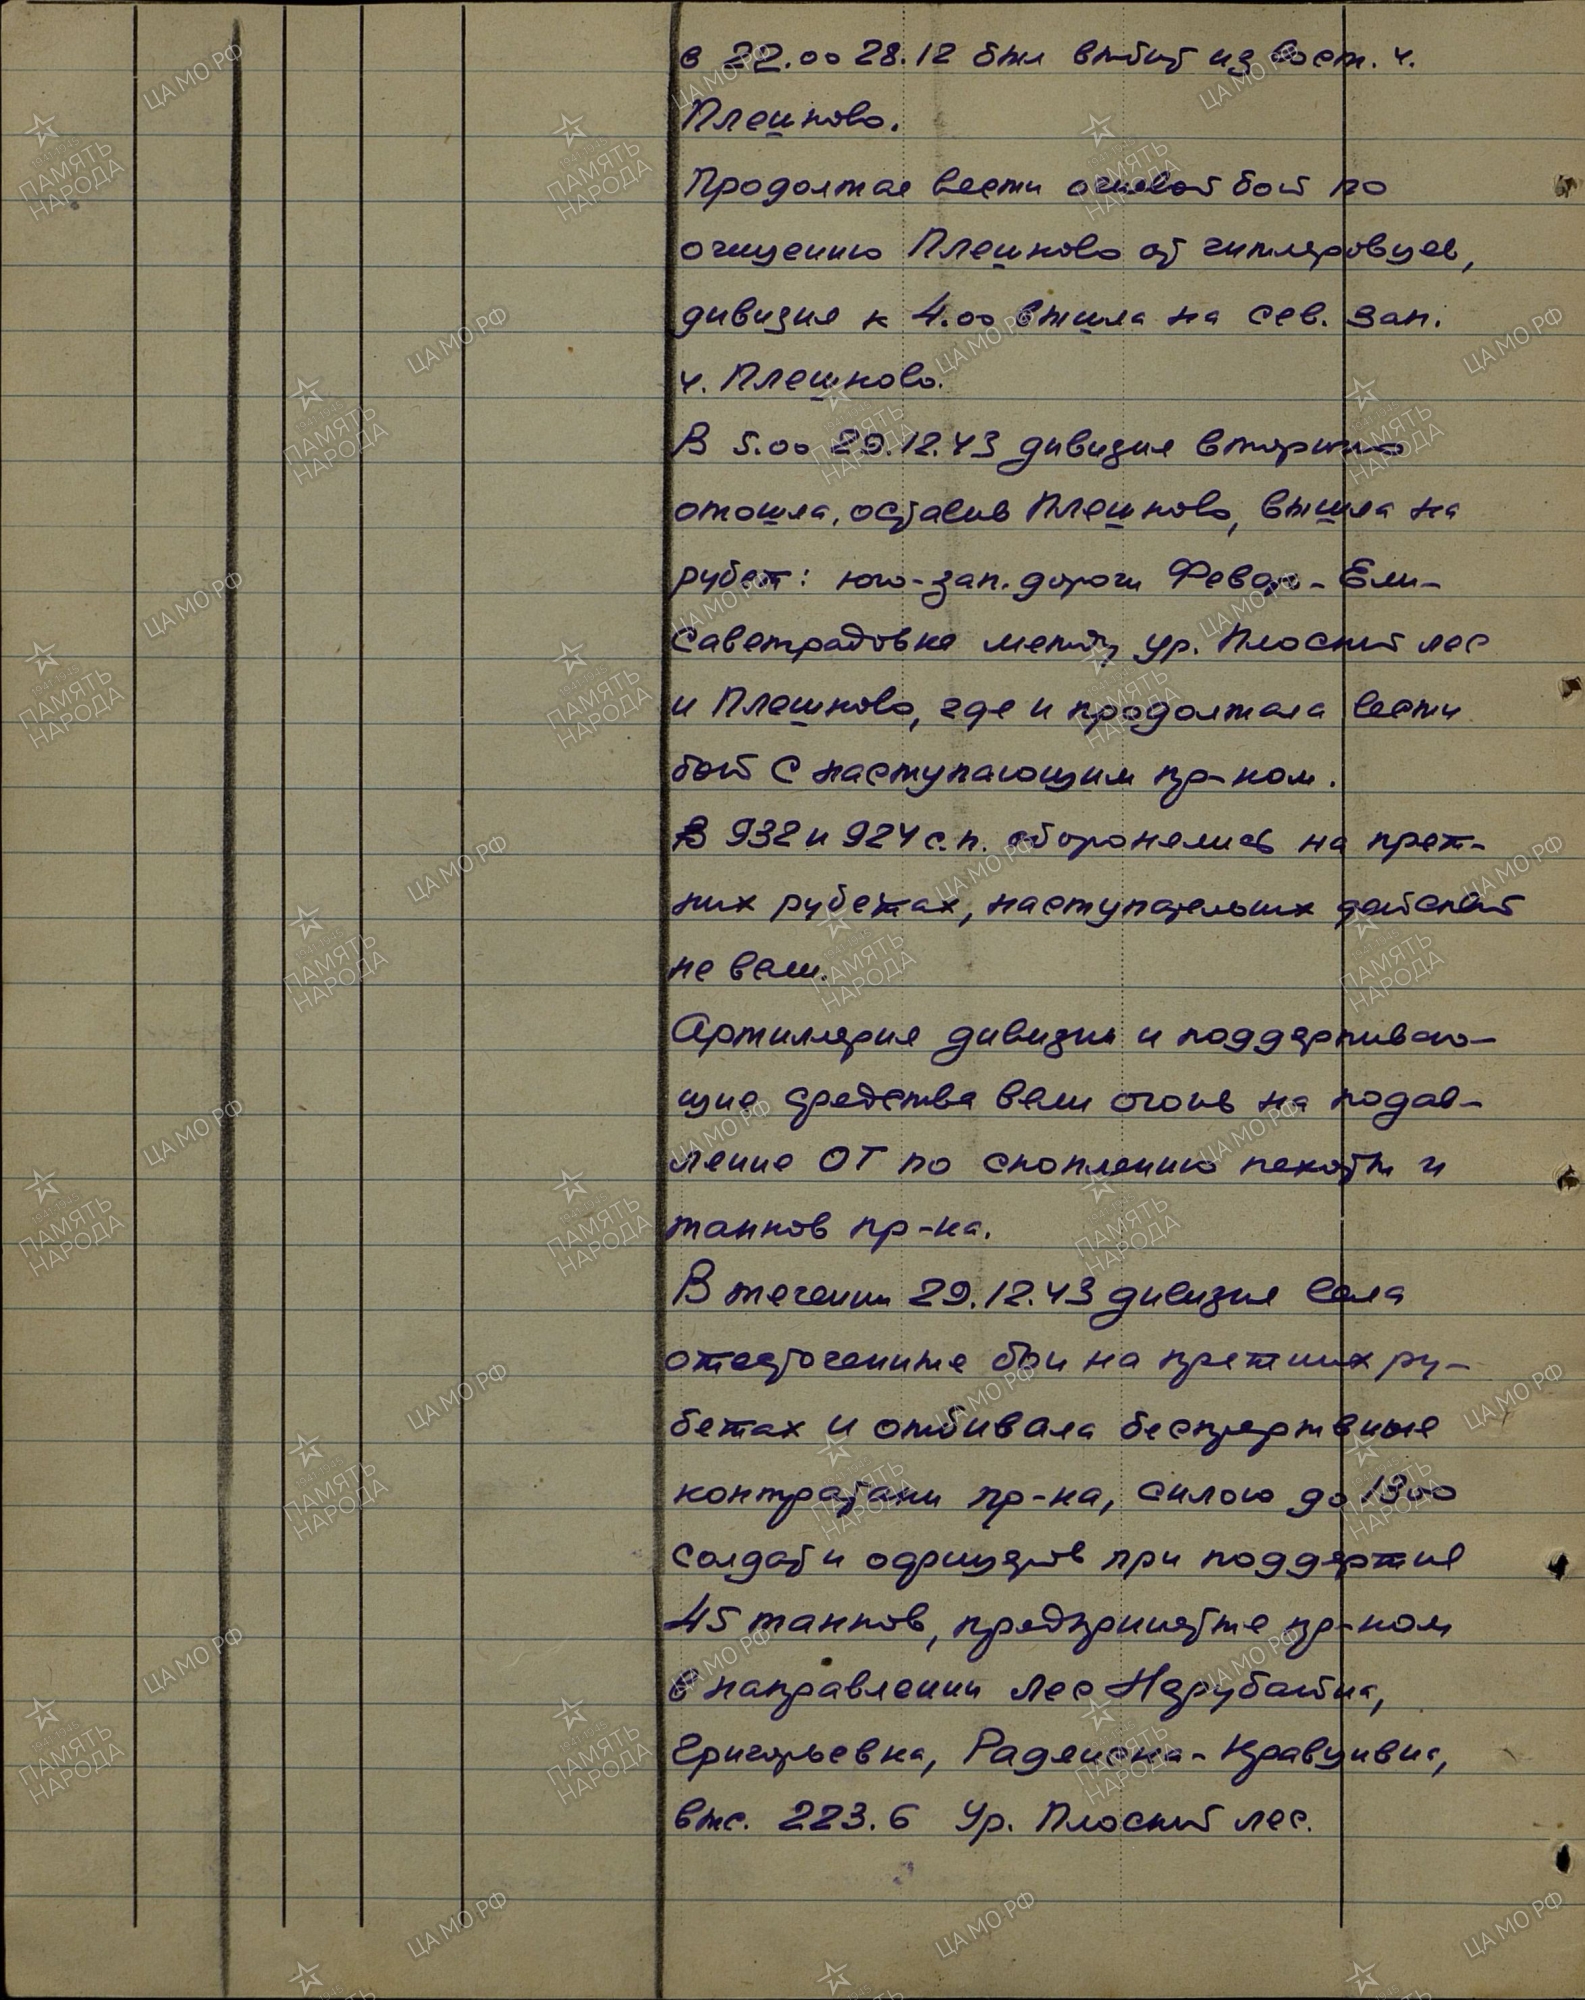 в 22.00 28.12 был выбит из вост. ч.
Плешково.
Продолжая вести огневой бой по
очищению Плешково от гитлеровцев,
дивизия к 4.00 вышла на сев. зап.
ч. Плешково.
В 5.00 29.12.43 дивизия вторично
отошла, оставив Плешково, вышла на
рубеж: юго-зап. дороги Февар - Ели-
саветградовка между ур. Плоский лес
и Плешково, где и продолжала вести
бой с наступающим пр-ком.
В 932 и 924 с.п. оборонялись на преж-
них рубежах, наступательных действий
не вели.
Артиллерия дивизии и поддерживаю-
щие средства вели огонь на подав-
ление ОТ по скоплению пехоты и
танков пр-ка.
В течении 29.12.43 дивизия вела
ожесточенные бои на прежних ру-
бежах и отбивала беспрерывные
контратаки пр-ка, силою до 1300
солдат и офицеров при поддержке
45 танков, предпринятые пр-ком
в направлении лес Нерубайка,
Григорьевка, Радянска-Кравцивка,
выс. 223.6 Ур. Плоский лес.
ЦАМО РФ
1941-1945
ПАМЯТЬ
НАРОДА